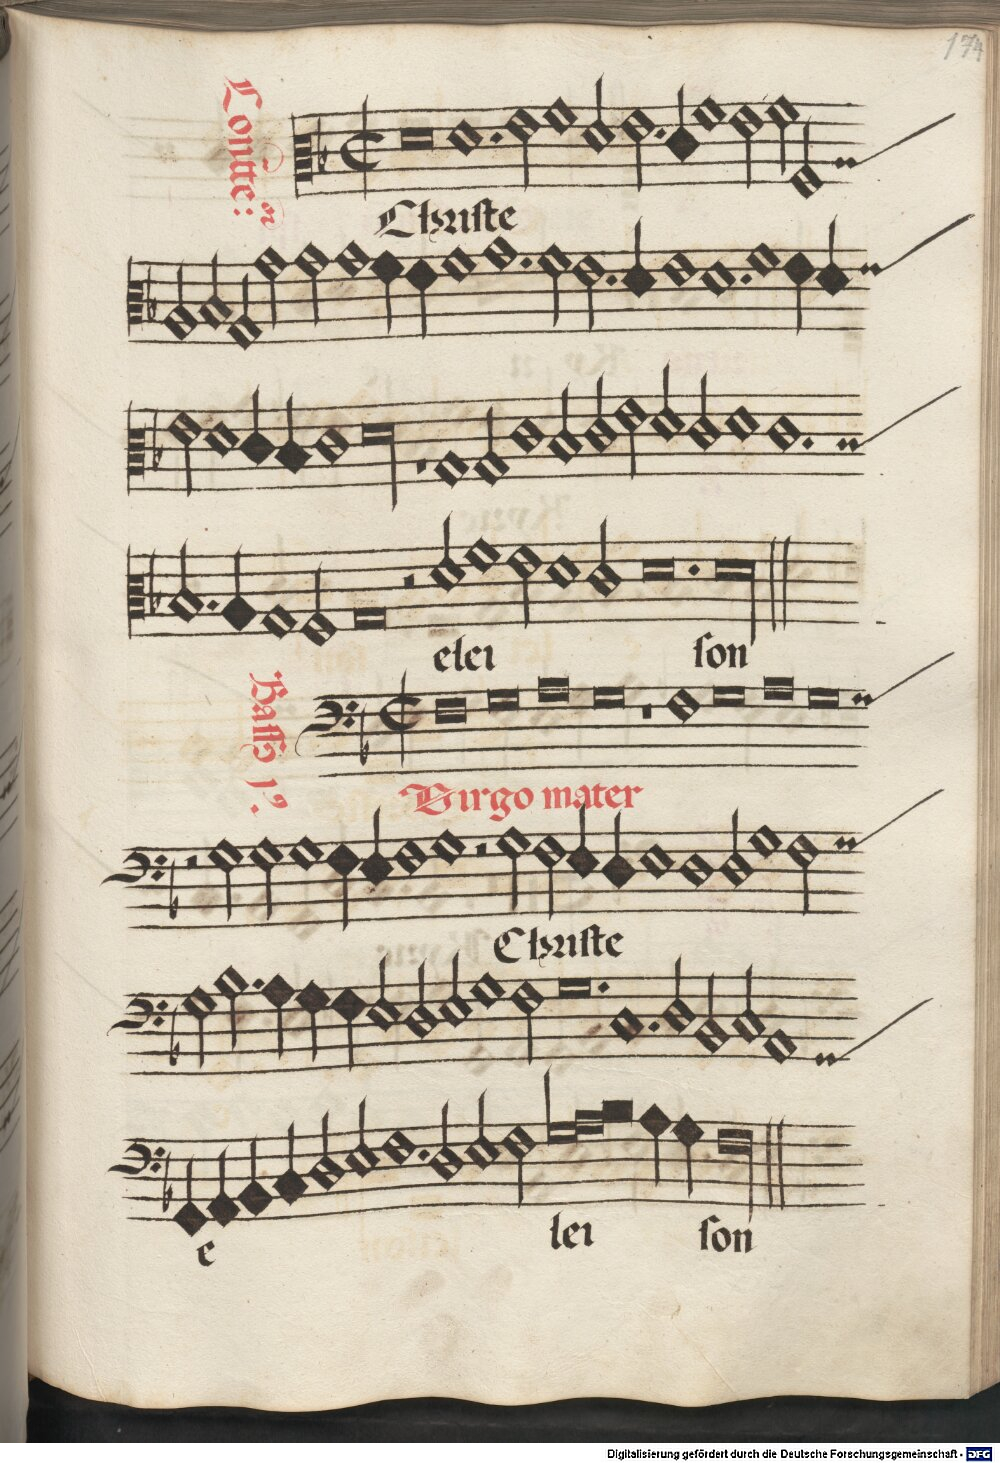 174
Christe
elei son
Bass 1ꝰ.
Virgo mater
Christe
e lei son
Digitalisierung gefördert durch die Deutsche Forschungsgemeinschaft - DFG